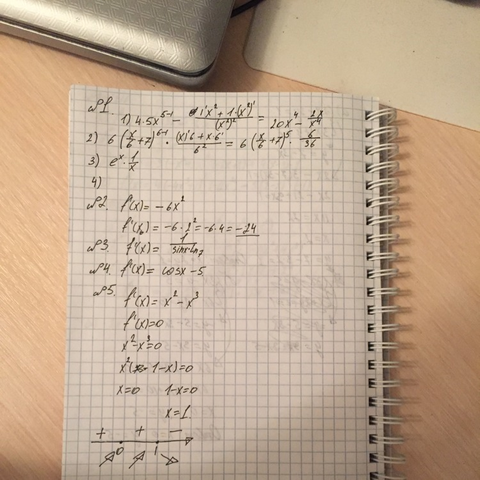 №1.
1) 4·5x^{5-1} - (1'x² + 1·(x²)')/(x²)² = 20x⁴ - 2x/x⁴
2) 6(x/6+7)^{6-1} · ((x)'6 + x·6')/6² = 6(x/6+7)⁵ · 6/36
3) eˣ · 1/x
4)
№2. f'(x) = -6x²
f'(x₀) = -6·2² = -6·4 = -24
№3 f'(x) = 1/
№4. f'(x) = cosx - 5
№5.
f'(x) = x² - x³
f'(x) = 0
x² - x³ = 0
x²(1-x) = 0
x = 0 1-x = 0
x = 1
+ + -
0 1